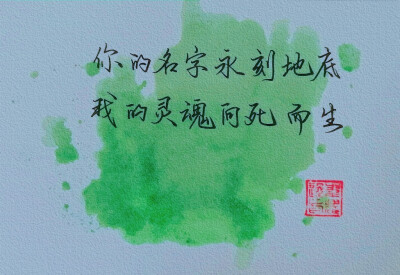 你的名字永刻地底
我的灵魂向死而生